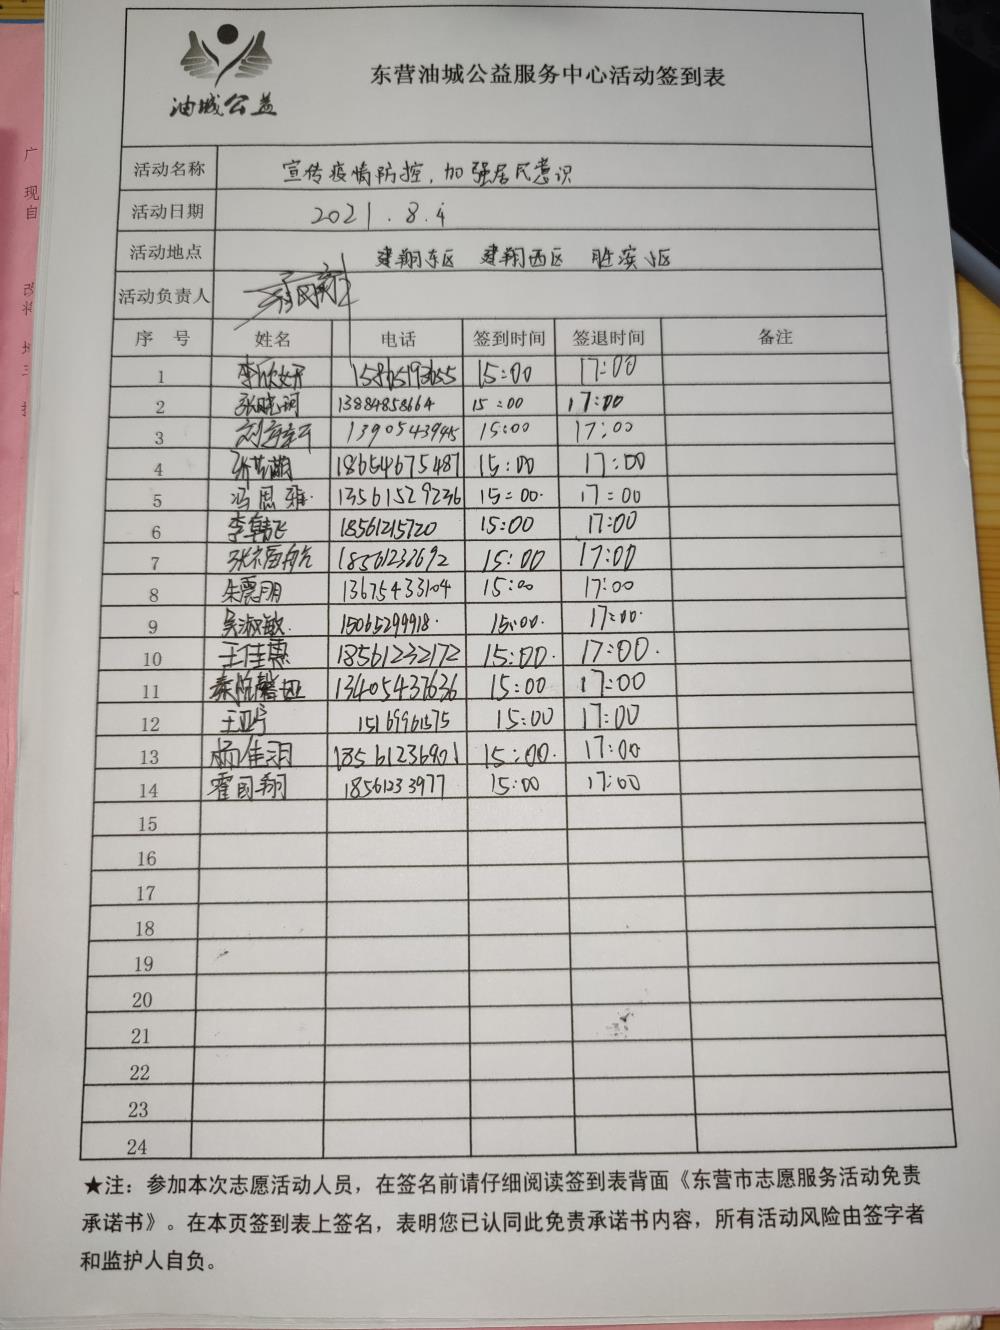 油城公益
东营油城公益服务中心活动签到表
活动名称 宣传疫情防控，加强居民意识
活动日期 2021.8.4
活动地点 建翔东区 建翔西区 胜滨小区
活动负责人
序 号 姓名 电话 签到时间 签退时间 备注
1 李欣妍 15865193655 15:00 17:00
2 张晓珂 13884858664 15:00 17:00
3 1390543945 15:00 17:00
4 张艺潇 18654675487 15:00 17:00
5 冯思雅 13561529236 15:00 17:00
6 李韩飞 18561215720 15:00 17:00
7 张福航 18561232692 15:00 17:00
8 朱震明 13675433104 15:00 17:00
9 吴淑敏 15065299918 15:00 17:00
10 王佳惠 18561232172 15:00 17:00
11 13405437636 15:00 17:00
12 王亚宁 15169961575 15:00 17:00
13 杨佳明 18561236901 15:00 17:00
14 霍国翔 18561233977 15:00 17:00
15
16
17
18
19
20
21
22
23
24
★注：参加本次志愿活动人员，在签名前请仔细阅读签到表背面《东营市志愿服务活动免责
承诺书》。在本页签到表上签名，表明您已认同此免责承诺书内容，所有活动风险由签字者
和监护人自负。
广
现
自
改
将